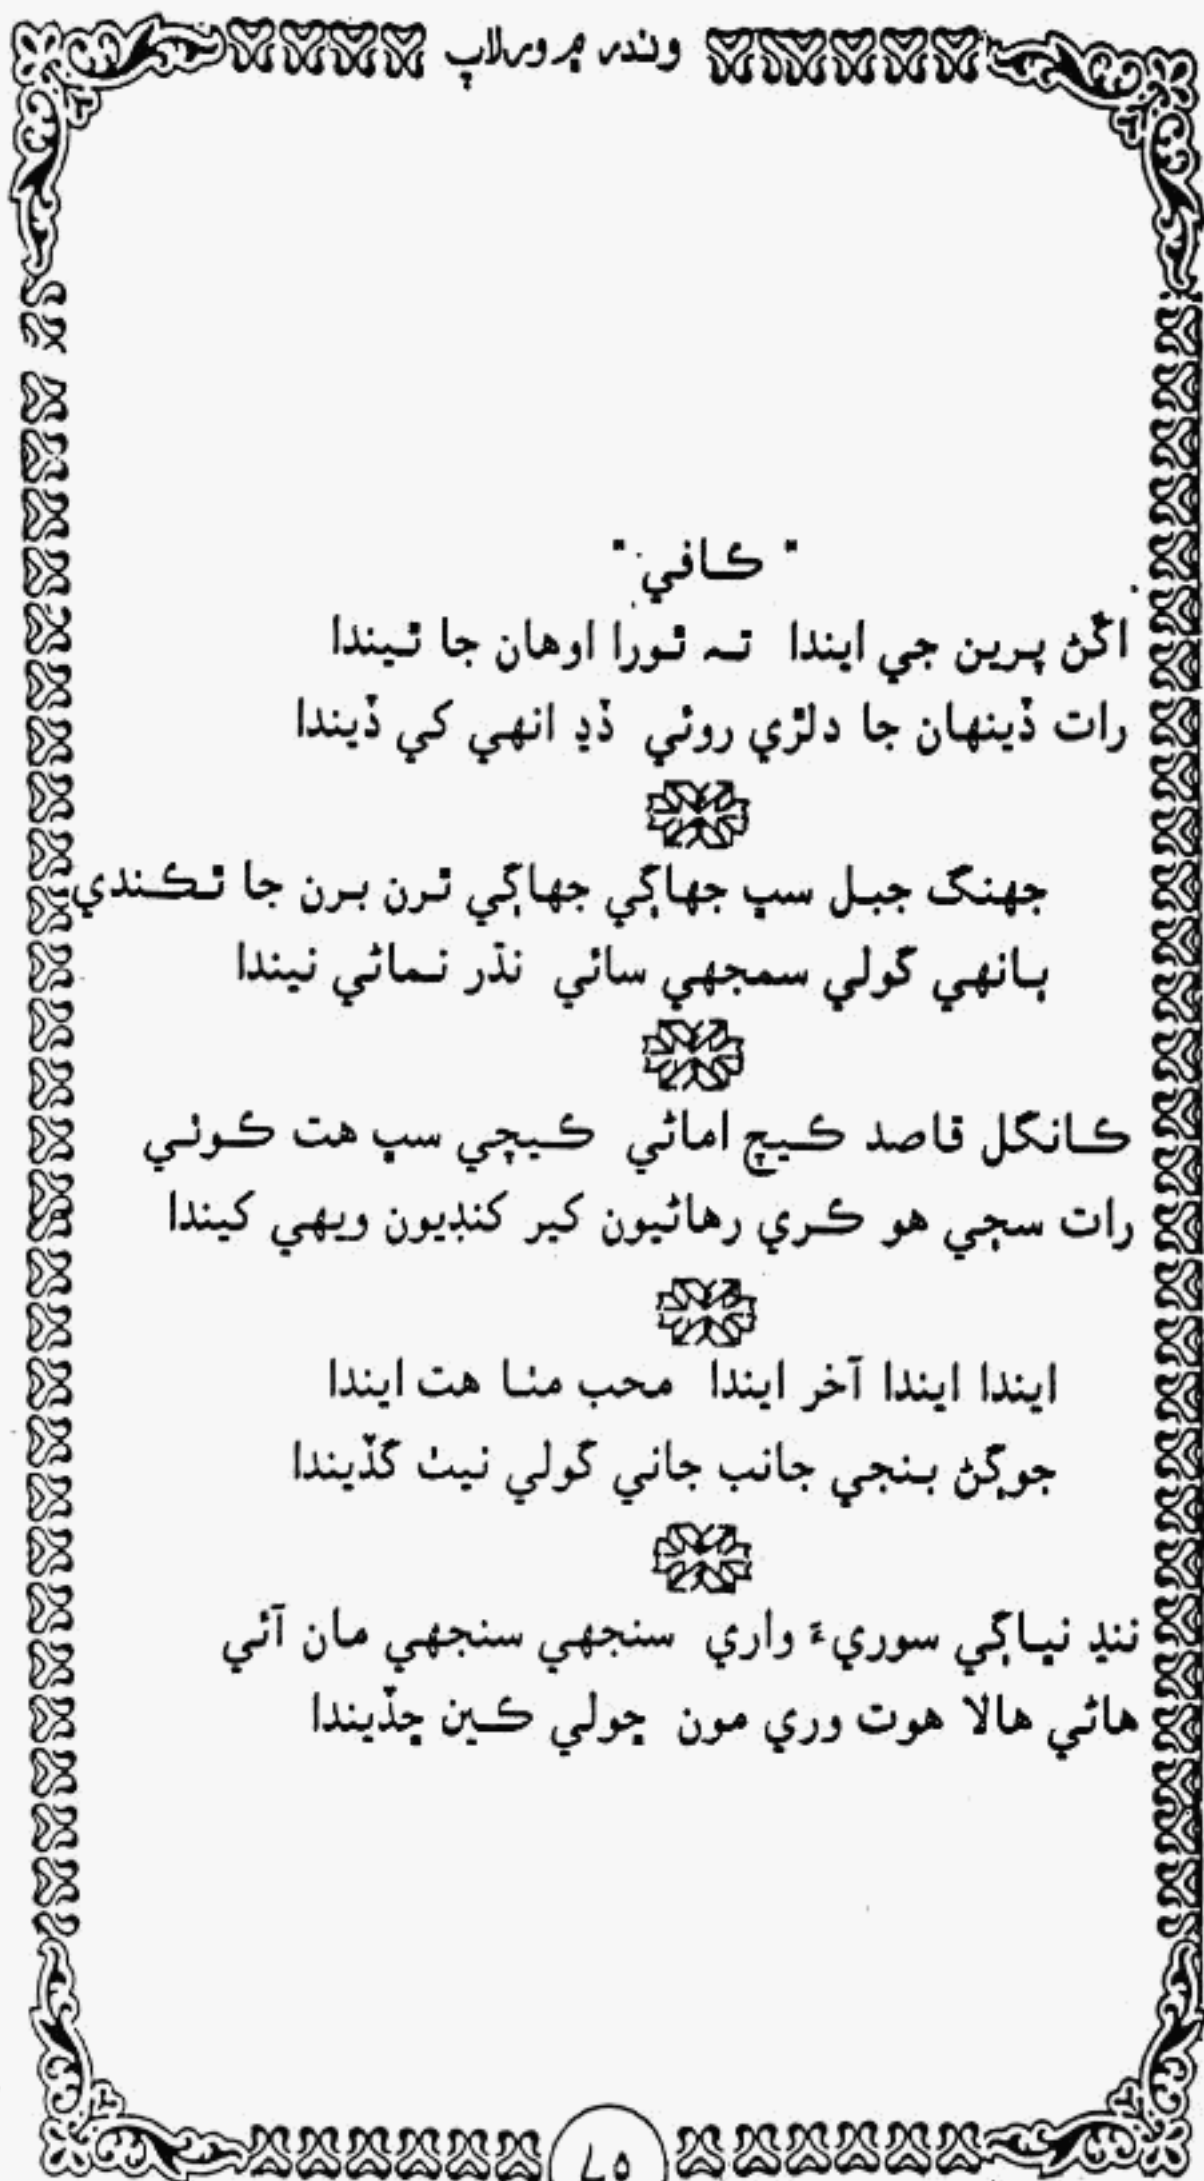 وندر ۾ ورلاپ
" ڪافي "
اڱڻ پرين جي ايندا تہ ٿورا اوهان جا ٿيندا
رات ڏينهان جا دلڙي روئي ڏڍ انهي کي ڏيندا
جهنگ جبل سڀ جهاڳي جهاڳي ٿرن برن جا ٿڪندي
ٻانهي گولي سمجهي سائي نڌر نماڻي نيندا
ڪانگل قاصد ڪيچ اماڻي ڪيچي سڀ هت ڪوئي
رات سڄي هو ڪري رهاڻيون کير کنڊيون ويهي کيندا
ايندا ايندا آخر ايندا محب مٺا هت ايندا
جوڳڻ بنجي جانب جاني گولي نيٺ گڏيندا
ننڊ نڀاڳي سوريءَ واري سنجهي سنجهي مان آئي
هاڻي هالا هوت وري مون چولي ڪين ڇڏيندا
٧٥